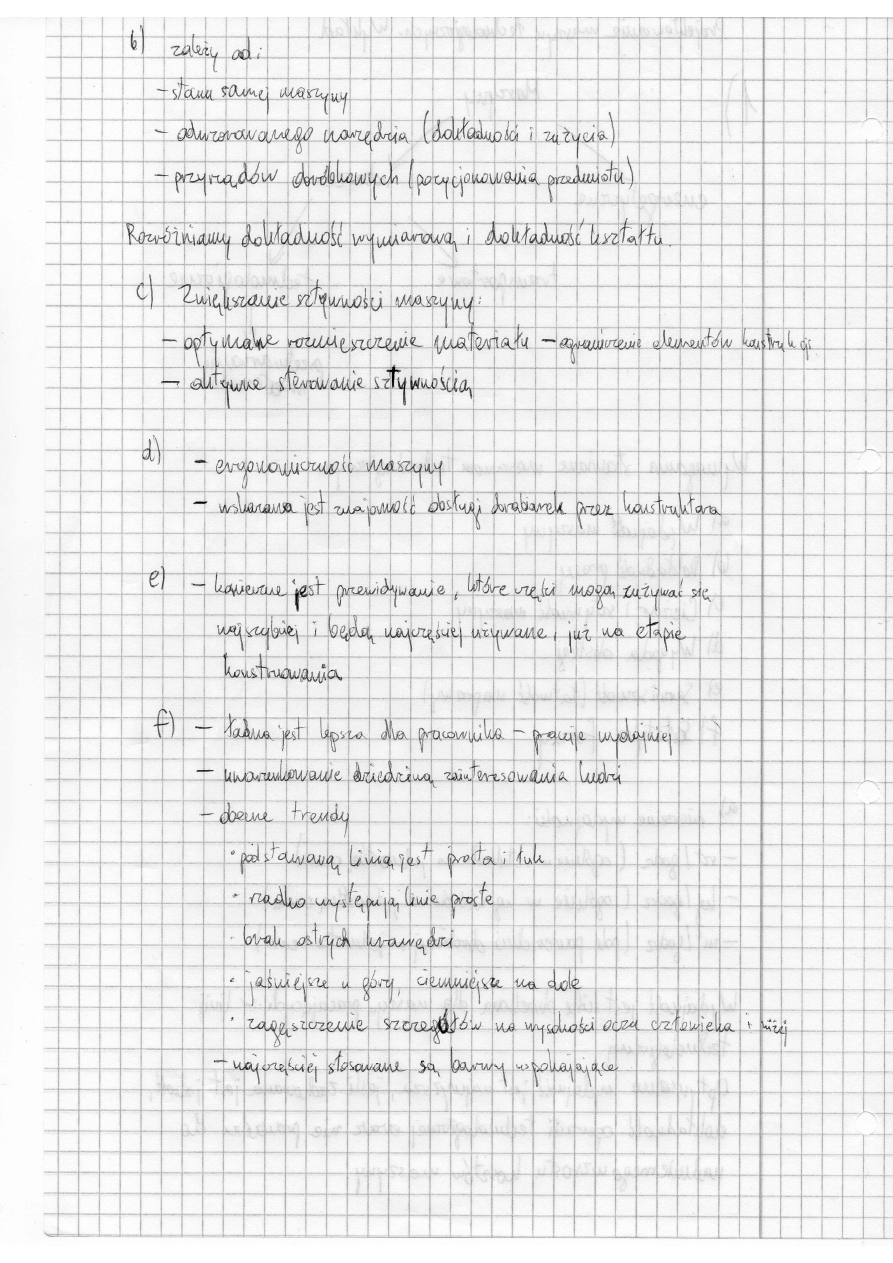 b) zależy od:
- stanu samej maszyny
- odwzorowanego narzędzia (dokładności i zużycia)
- przyrządów obróbkowych (pozycjonowania przedmiotu)
Rozróżniamy dokładność wymiarową i dokładność kształtu.
c) Zwiększanie sztywności maszyny:
- optymalne rozmieszczenie materiału - ograniczenie elementów konstrukcji
- aktywne sterowanie sztywnością
d) - ergonomiczność maszyny
- wskazana jest znajomość obsługi obrabiarek przez konstruktora
e) - konieczne jest przewidywanie, które części mogą zużywać się
najszybciej i będą najczęściej używane, już na etapie
konstruowania
f) - ładna jest lepsza dla pracownika - pracuje wydajniej
- uwarunkowanie dziedziną zainteresowania ludzi
- obecne trendy
· podstawową linią jest prosta i łuk
· rzadko występują linie proste
· brak ostrych krawędzi
· jaśniejsze u góry, ciemniejsze na dole
· zagęszczenie szczegółów na wysokości oczu człowieka i niżej
- najczęściej stosowane są barwy uspokajające